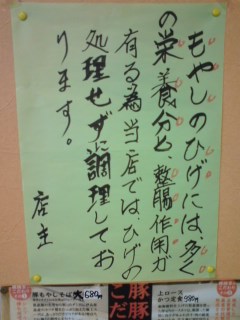 もやしのひげには、多く
の栄養分と、整腸作用が
有る為当店では、ひげの
処理せずに調理してお
ります。
店主
豚もやしそば
680円
上ロース
かつ定食980円
豚豚
こだ